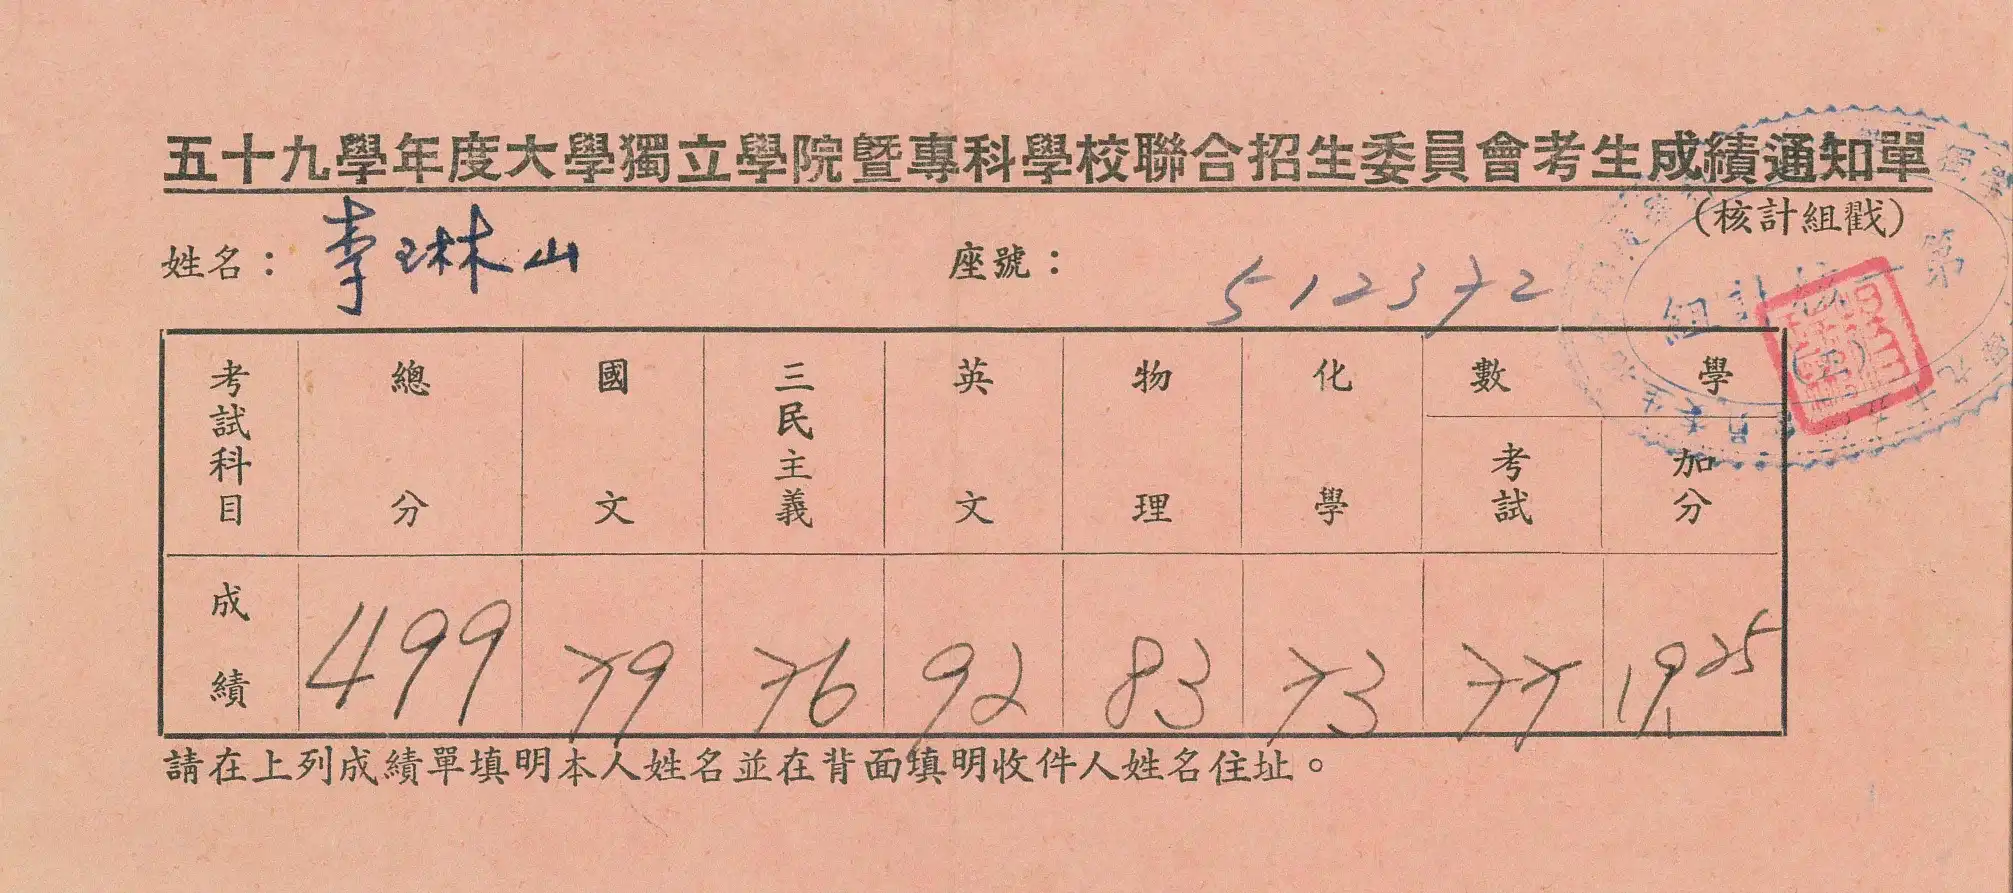 五十九學年度大學獨立學院暨專科學校聯合招生委員會考生成績通知單
(核計組戳)
姓名: 李琳山 座號: 512372
考試科目 總分 國文 三民主義 英文 物理 化學 數學
考試 加分
成績 499 79 76 92 83 73 77 19.25
請在上列成績單填明本人姓名並在背面填明收件人姓名住址。
第一核計組
(五)